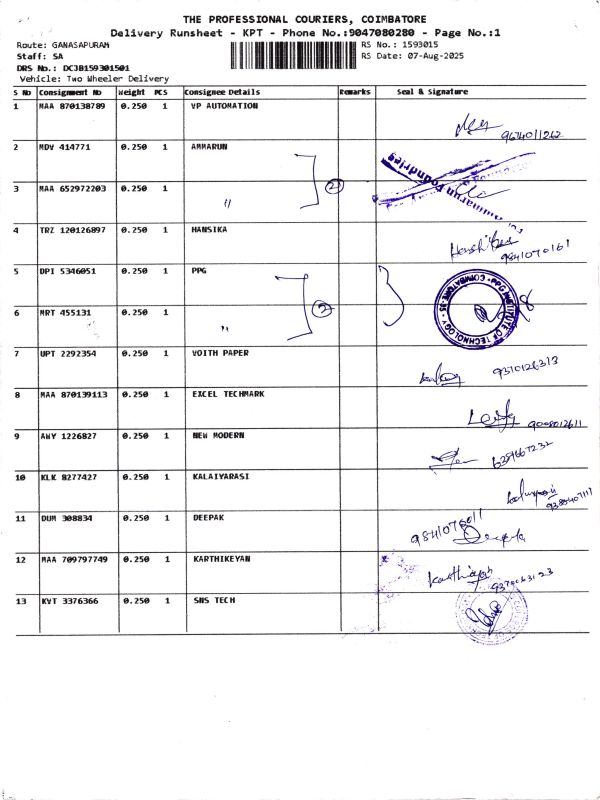 THE PROFESSIONAL COURIERS, COIMBATORE
Delivery Runsheet - KPT - Phone No.:9047080280 - Page No.:1
Route: GANASAPURAM
RS No.: 1593015
Staff: SA
RS Date: 07-Aug-2025
DRS No.: DCJB159301501
Vehicle: Two Wheeler Delivery
S No Consignment No Weight PCS Consignee Details Remarks Seal & Signature
1 MAA 870138789 0.250 1 VP AUTOMATION
9674011262
2 MDV 414771 0.250 1 AMMARUN
2
Ammarun Foundries
3 MAA 652972203 0.250 1 "
4 TRZ 120126897 0.250 1 HANSIKA
9841070161
5 DPI 5346051 0.250 1 PPG
2
PPG INSTITUTE OF TECHNOLOGY - COIMBATORE-35
6 MRT 455131 0.250 1 "
7 UPT 2292354 0.250 1 VOITH PAPER
9510126313
8 MAA 870139113 0.250 1 EXCEL TECHMARK
9008012611
9 AWY 1226827 0.250 1 NEW MODERN
6359667232
10 KLK 8277427 0.250 1 KALAIYARASI
11 DUM 308834 0.250 1 DEEPAK
9841076011
Deepak
12 MAA 709797749 0.250 1 KARTHIKEYAN
Karthigan
13 KVT 3376366 0.250 1 SNS TECH